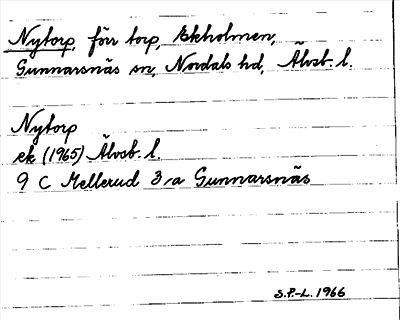 Nytorp, förr torp, Ekholmen,
Gunnarsnäs sn, Nordals hd, Älvsb. l.
Nytorp
ek (1965) Älvsb. l.
9 C Mellerud 3/a Gunnarsnäs
S.P.-L. 1966